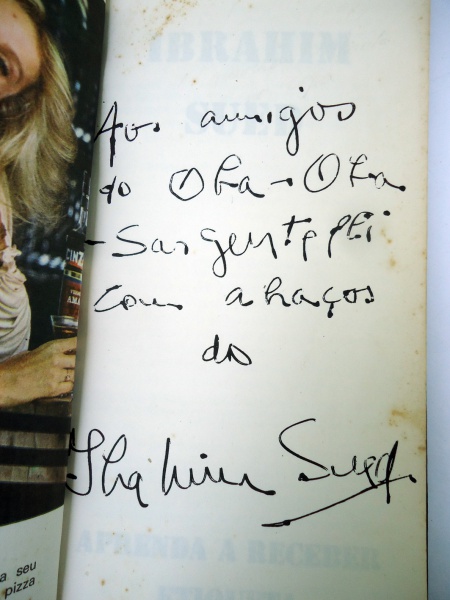 IBRAHIM
SUED
Aos amigos
do Oba-Oba
- Sargentelli
com abraços
do
Ibrahim Sued
APRENDA A RECEBER
ETIQUETA
CINZ
AMA
a seu
pizza